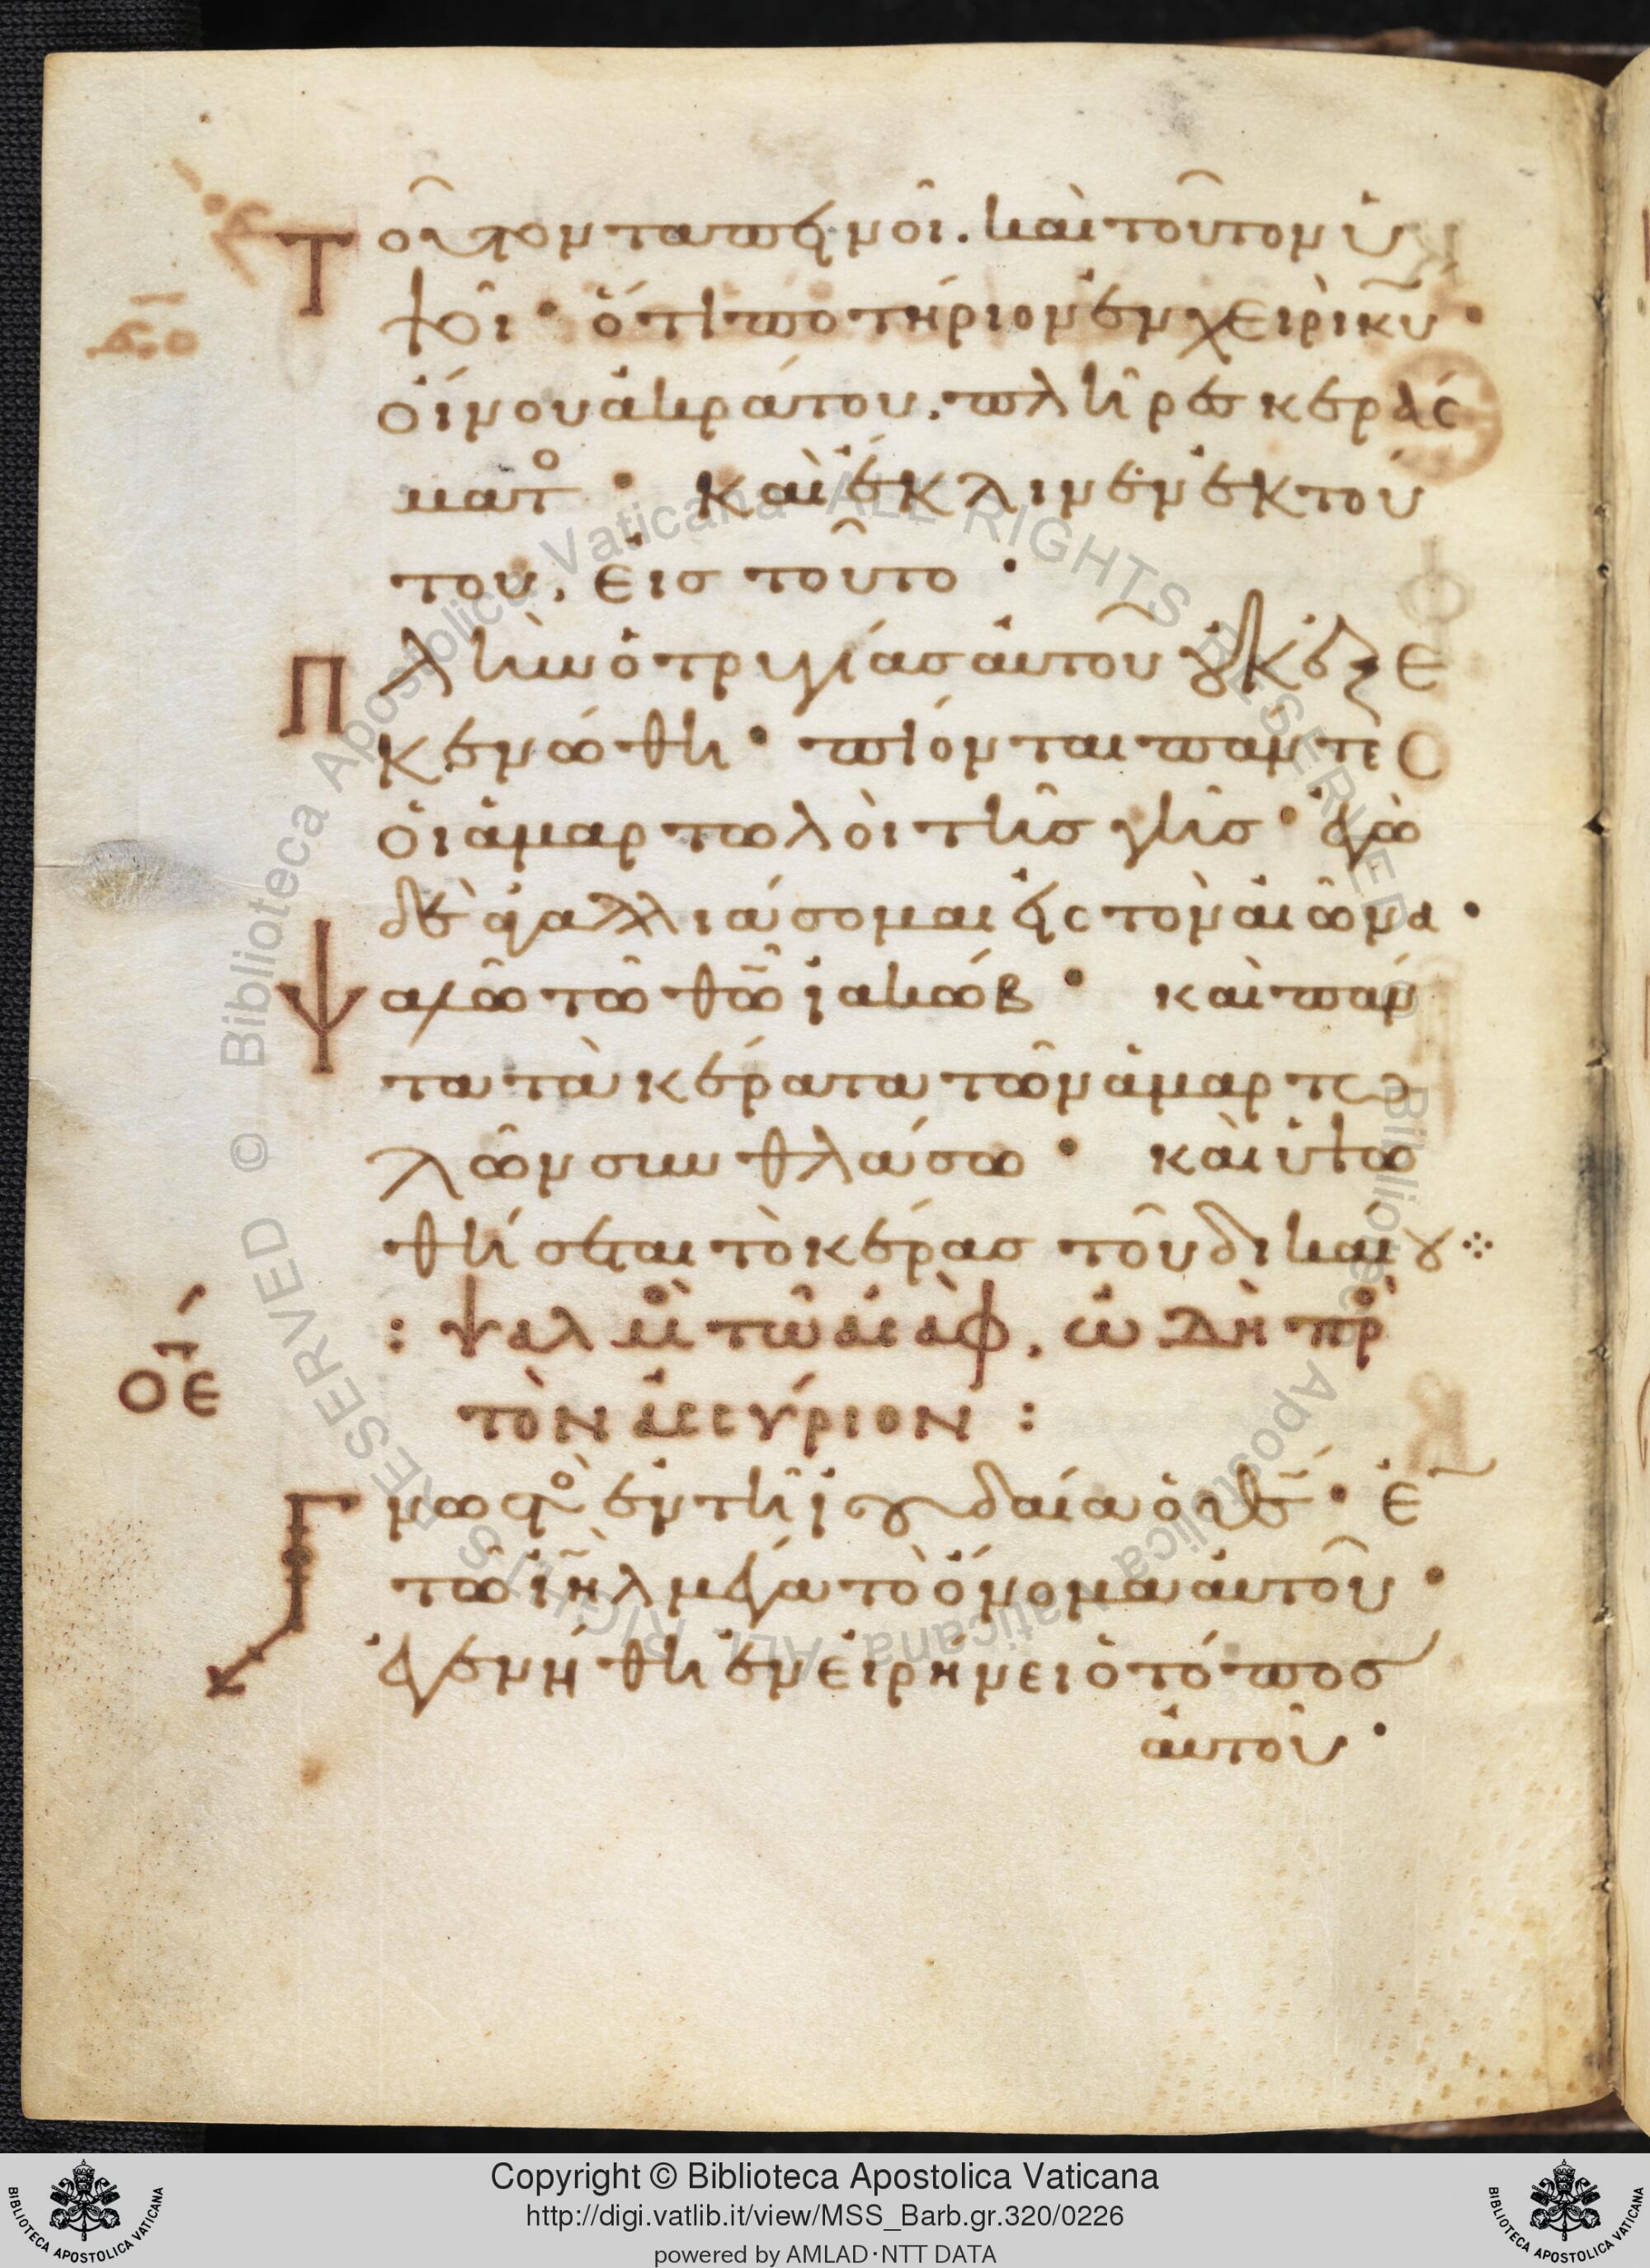 Τοῦτον ταπεινοῖ. καὶ τοῦτον ὑ
ψοῖ· ὅτι ποτήριον ἐν χειρὶ κυ·
οἴνου ἀκράτου, πλῆρες κεράσ
ματο· καὶ ἔκλινεν ἐκ τού
του, εἰς τοῦτο·
Πλὴν ὁ τρυγίας αὐτοῦ οὐκ ἐξε
κενώθη· πίονται πάντες
οἱ ἁμαρτωλοὶ τῆς γῆς· ἐγὼ
δὲ ἀγαλλιάσομαι εἰς τὸν αἰῶνα·
Ψαλῶ τῶ θῶ ἰακώβ· καὶ πάν
τα τὰ κέρατα τῶν ἁμαρτω
λῶν συνθλάσω· καὶ ὑψω
θήσεται τὸ κέρας τοῦ δικαίου⁘
: ψαλμ τῶ ἀσὰφ, ὠδὴ πρ
οε
τὸν ἀσσύριον :
Γνωστὸς ἐν τῆ ἰουδαία ὁ θς· ἐν
τῶ ιηλ μέγα τὸ ὄνομα αὐτοῦ·
ἐγενήθη ἐν εἰρήνει ὁ τόπος
αὐτοῦ·
Biblioteca Apostolica Vaticana ALL RIGHTS RESERVED ©
Biblioteca Apostolica Vaticana ALL RIGHTS RESERVED ©
Copyright © Biblioteca Apostolica Vaticana
http://digi.vatlib.it/view/MSS_Barb.gr.320/0226
powered by AMLAD·NTT DATA
BIBLIOTECA APOSTOLICA VATICANA
BIBLIOTECA APOSTOLICA VATICANA